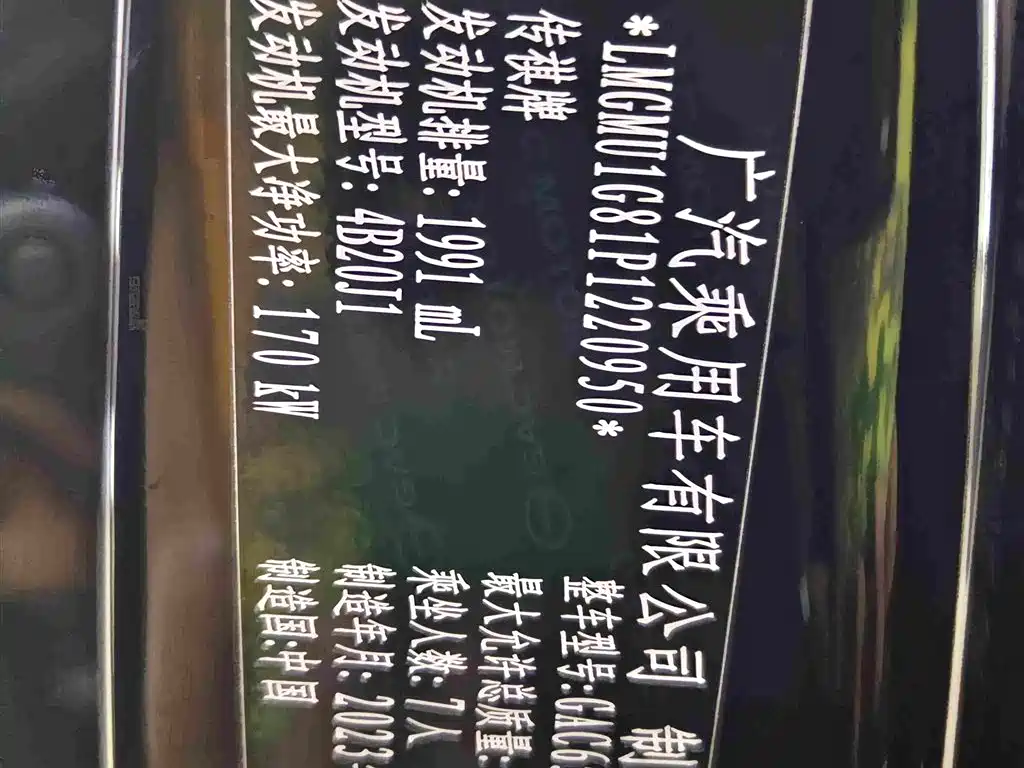 广汽乘用车有限公司 制
*LMGMU1G81P1220950*
传祺牌
整车型号:GAC6
发动机排量: 1991 mL
最大允许总质量:
发动机型号: 4B20J1
乘坐人数: 7人
发动机最大净功率: 170 kW
制造年月: 2023
制造国:中国